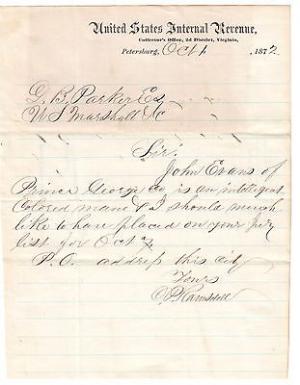 United States Internal Revenue,
Collector's Office, 2d District, Virginia,
Petersburg, Oct 1, 1872
G. B. Parker Esq
U S Marshall &c
Sir,
John Evans of
Prince George Co. is an intelligent
Colored man & I should much
like to have placed on your jury
list for Oct
P.O. address this city
Yours
O P Ramsdell